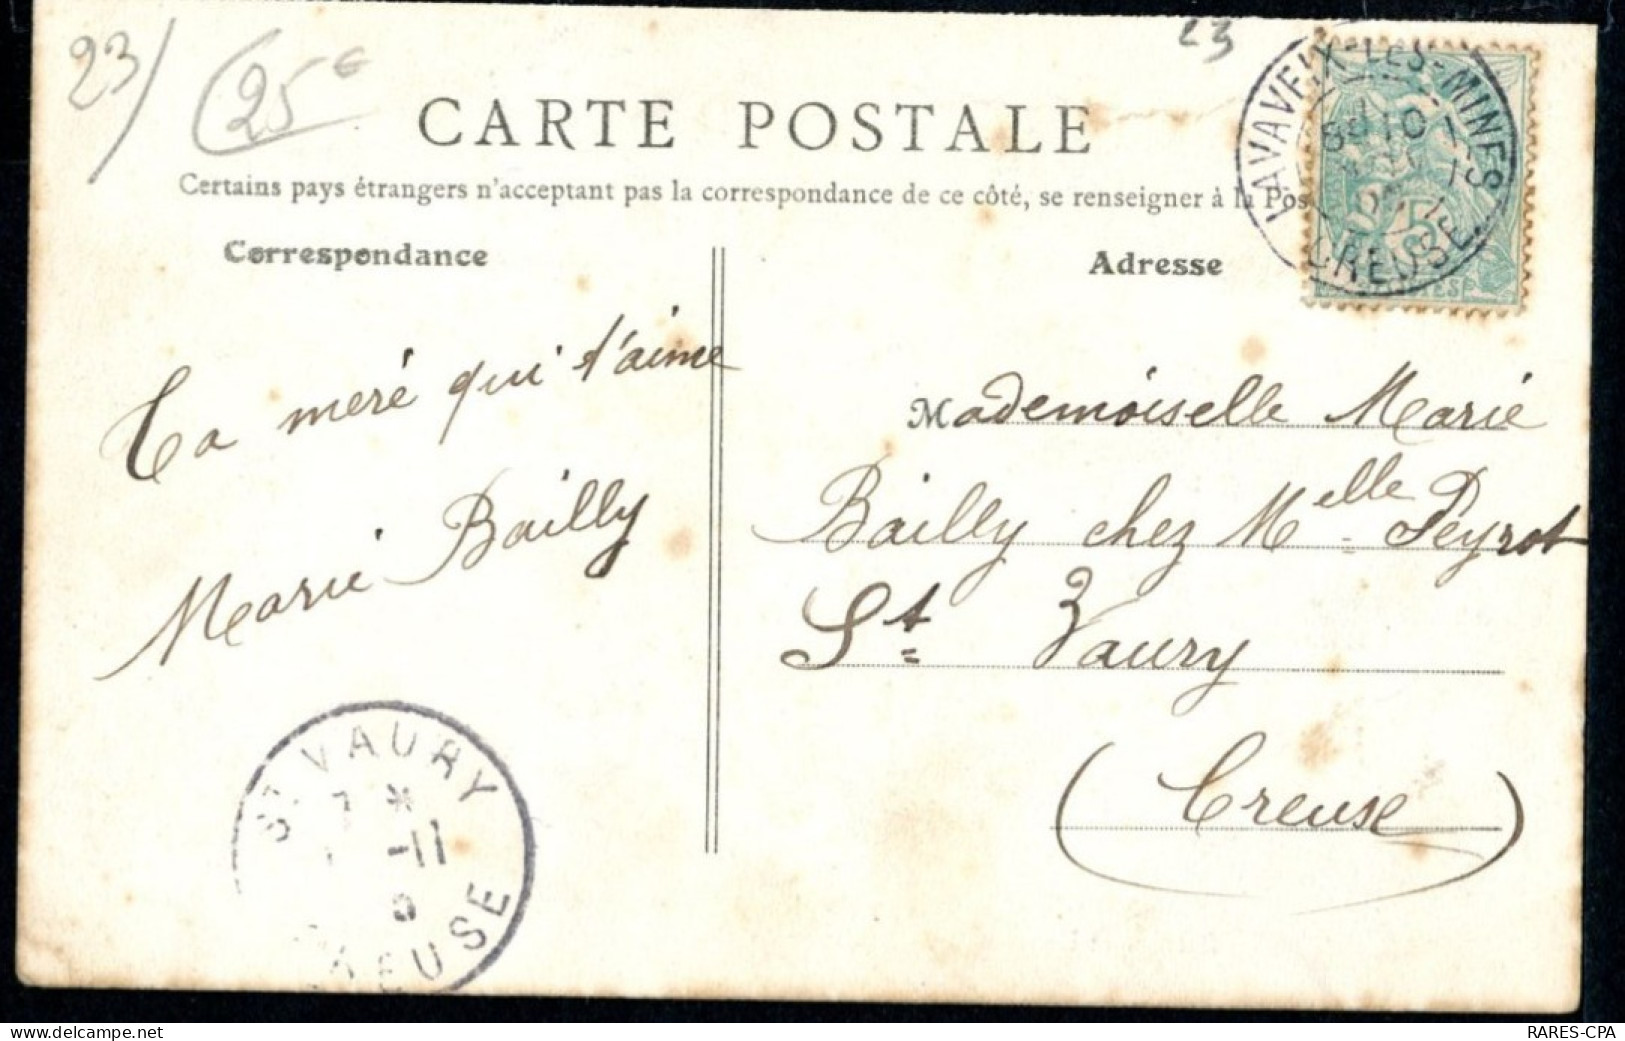 23/
25€
23
CARTE POSTALE
Certains pays étrangers n'acceptent pas la correspondance de ce côté, se renseigner à la Pos
Correspondance
Adresse
LAVAVEIX-LES-MINES
CREUSE
Ta meré qui t'aime
Marie Bailly
Mademoiselle Marie
Bailly chez Melle Peyrot
St Vaury
(Creuse)
ST VAURY
7 *
-11
CREUSE
RARES-CPA